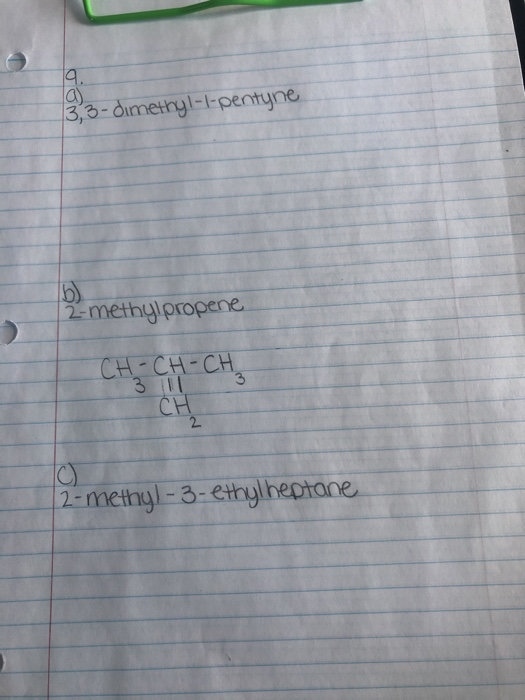 9.
a)
3,3-dimethyl-1-pentyne
b)
2-methylpropene
CH3-CH-CH3
|||
CH2
c)
2-methyl-3-ethylheptane